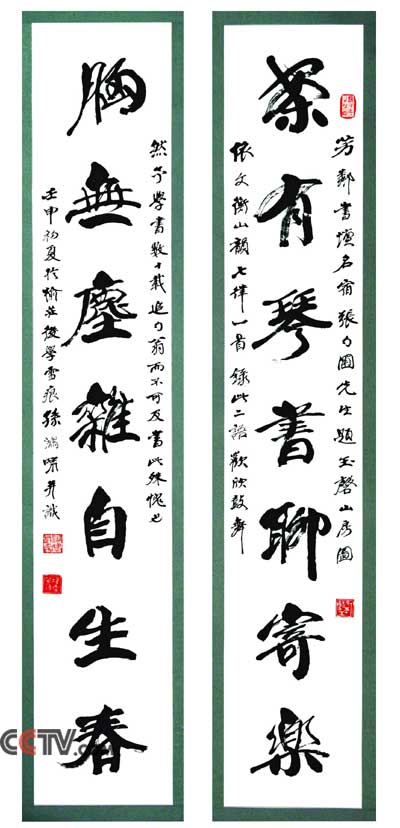 案有琴書聊寄樂
芳鄰書壇名宿張勺圃先生題玉磬山房圖
依文衡山韻七律一首錄此二語歡欣鼓舞
胸無塵雜自生春
然予學書數十載追勺翁而不可及書此殊愧也
壬申初夏於愉莊後學雪痕孫并識
CCTV.com